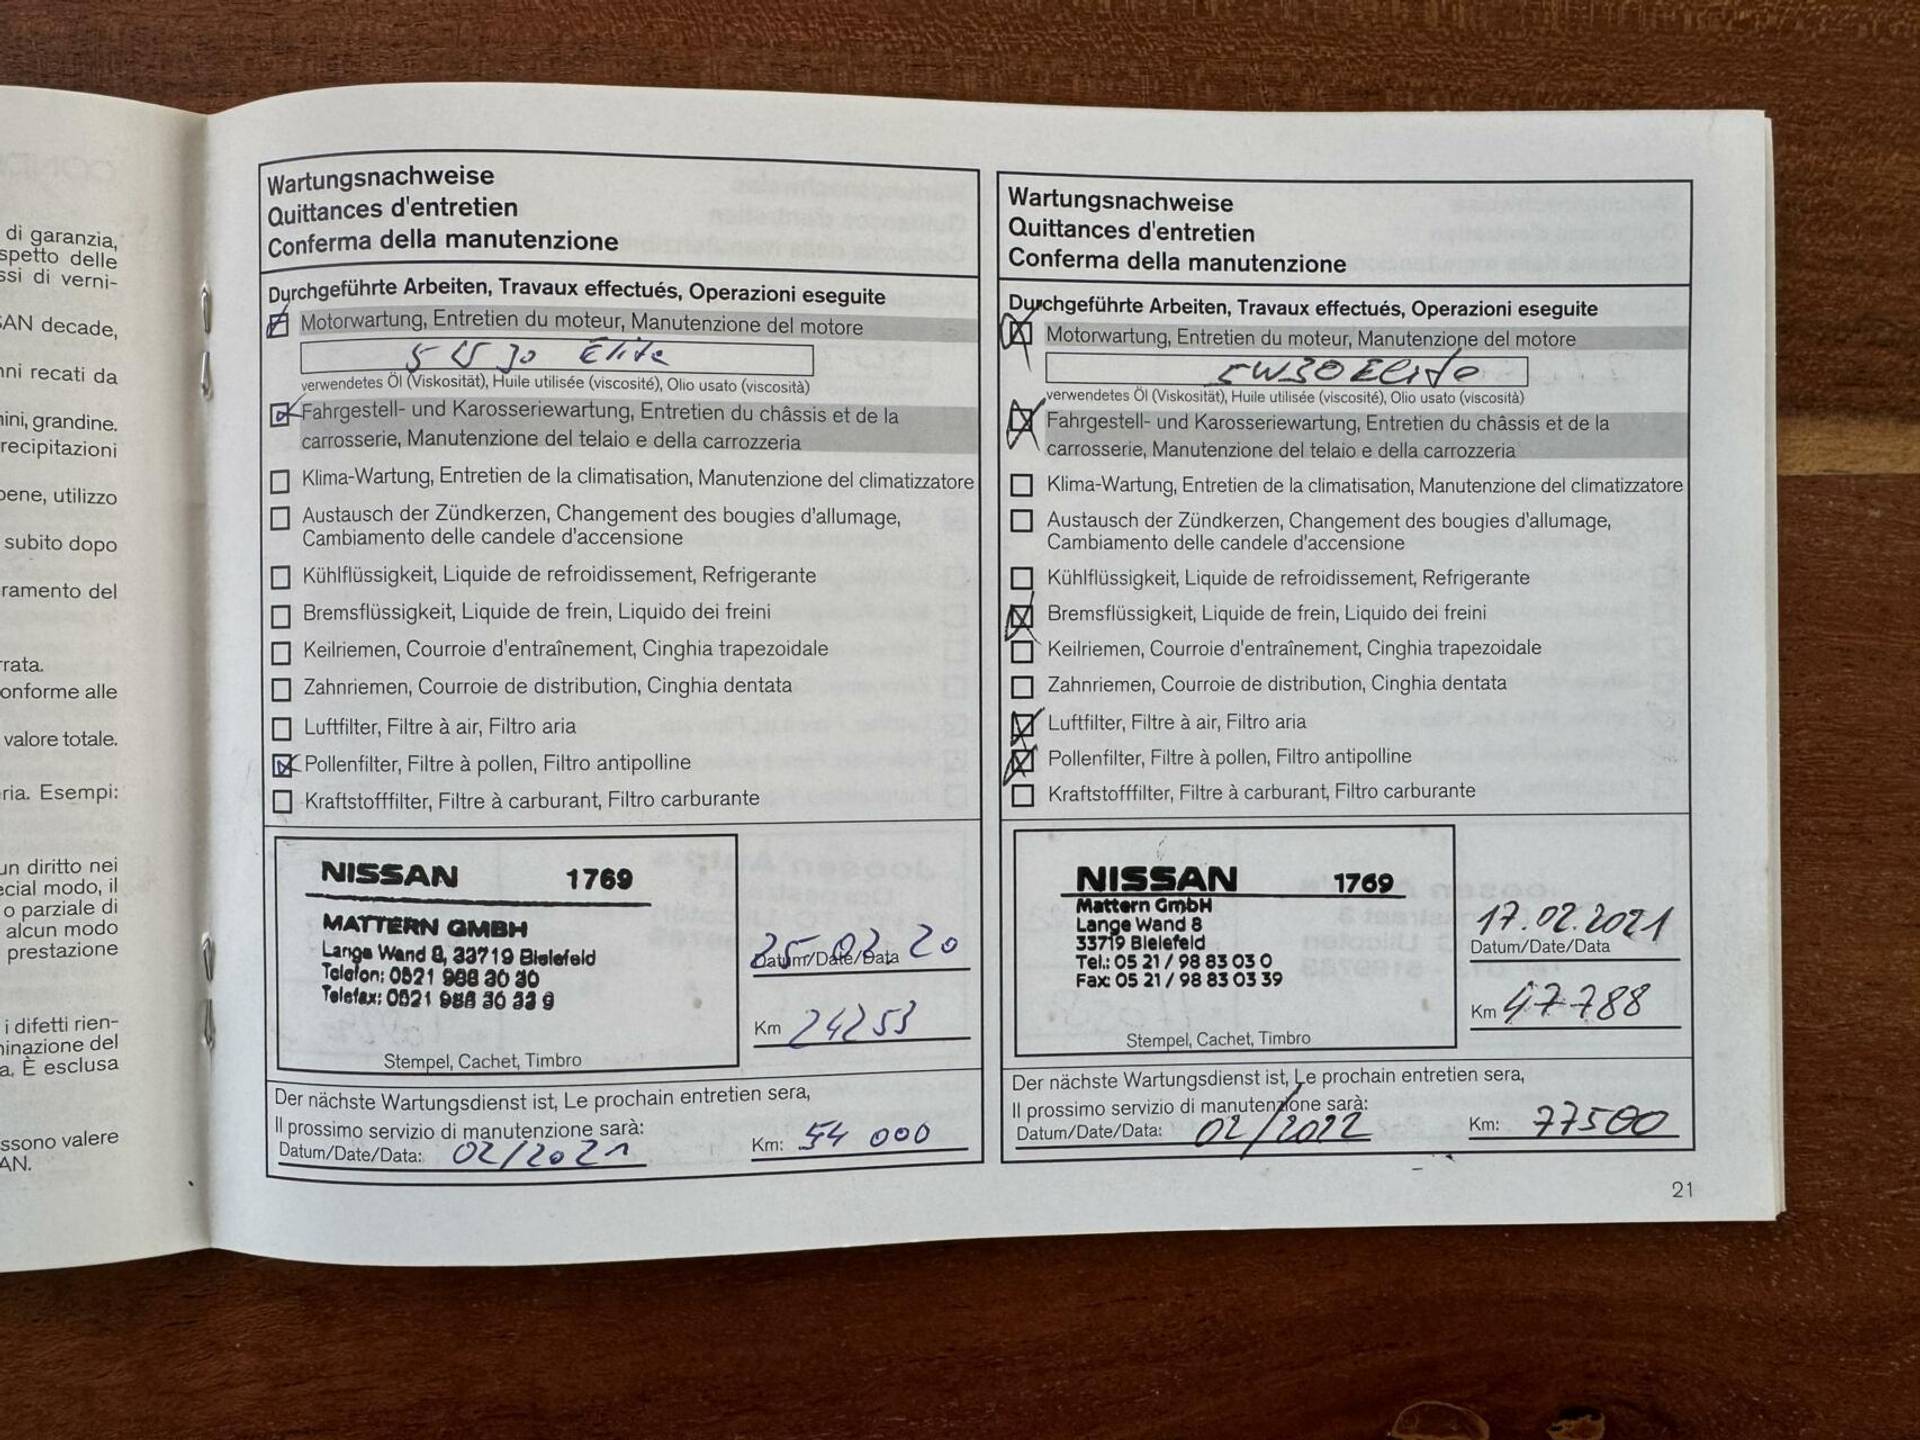 di garanzia,
spetto delle
ssi di verni-
SAN decade,
nni recati da
nini, grandine.
recipitazioni
pene, utilizzo
subito dopo
ramento del
rrata.
onforme alle
valore totale.
ria. Esempi:
un diritto nei
ecial modo, il
o parziale di
alcun modo
prestazione
i difetti rien-
ninazione del
a. È esclusa
ssono valere
AN.
Wartungsnachweise
Quittances d'entretien
Conferma della manutenzione
Durchgeführte Arbeiten, Travaux effectués, Operazioni eseguite
Motorwartung, Entretien du moteur, Manutenzione del motore
Elite
verwendetes Öl (Viskosität), Huile utilisée (viscosité), Olio usato (viscosità)
Fahrgestell- und Karosseriewartung, Entretien du châssis et de la
carrosserie, Manutenzione del telaio e della carrozzeria
Klima-Wartung, Entretien de la climatisation, Manutenzione del climatizzatore
Austausch der Zündkerzen, Changement des bougies d'allumage,
Cambiamento delle candele d'accensione
Kühlflüssigkeit, Liquide de refroidissement, Refrigerante
Bremsflüssigkeit, Liquide de frein, Liquido dei freini
Keilriemen, Courroie d'entraînement, Cinghia trapezoidale
Zahnriemen, Courroie de distribution, Cinghia dentata
Luftfilter, Filtre à air, Filtro aria
Pollenfilter, Filtre à pollen, Filtro antipolline
Kraftstofffilter, Filtre à carburant, Filtro carburante
NISSAN 1769
MATTERN GMBH
Lange Wand 8, 33719 Bielefeld
Telefon: 0521 988 30 30
Telefax: 0521 988 30 33 9
Stempel, Cachet, Timbro
25.02.20
Datum/Date/Data
Km 24253
Der nächste Wartungsdienst ist, Le prochain entretien sera,
Il prossimo servizio di manutenzione sarà:
Datum/Date/Data: 02/2021 Km: 54 000
Wartungsnachweise
Quittances d'entretien
Conferma della manutenzione
Durchgeführte Arbeiten, Travaux effectués, Operazioni eseguite
Motorwartung, Entretien du moteur, Manutenzione del motore
5W30 Elite
verwendetes Öl (Viskosität), Huile utilisée (viscosité), Olio usato (viscosità)
Fahrgestell- und Karosseriewartung, Entretien du châssis et de la
carrosserie, Manutenzione del telaio e della carrozzeria
Klima-Wartung, Entretien de la climatisation, Manutenzione del climatizzatore
Austausch der Zündkerzen, Changement des bougies d'allumage,
Cambiamento delle candele d'accensione
Kühlflüssigkeit, Liquide de refroidissement, Refrigerante
Bremsflüssigkeit, Liquide de frein, Liquido dei freini
Keilriemen, Courroie d'entraînement, Cinghia trapezoidale
Zahnriemen, Courroie de distribution, Cinghia dentata
Luftfilter, Filtre à air, Filtro aria
Pollenfilter, Filtre à pollen, Filtro antipolline
Kraftstofffilter, Filtre à carburant, Filtro carburante
NISSAN 1769
Mattern GmbH
Lange Wand 8
33719 Bielefeld
Tel.: 05 21 / 98 83 03 0
Fax: 05 21 / 98 83 03 39
Stempel, Cachet, Timbro
17.02.2021
Datum/Date/Data
Km 47788
Der nächste Wartungsdienst ist, Le prochain entretien sera,
Il prossimo servizio di manutenzione sarà:
Datum/Date/Data: 02/2022 Km: 77500
21